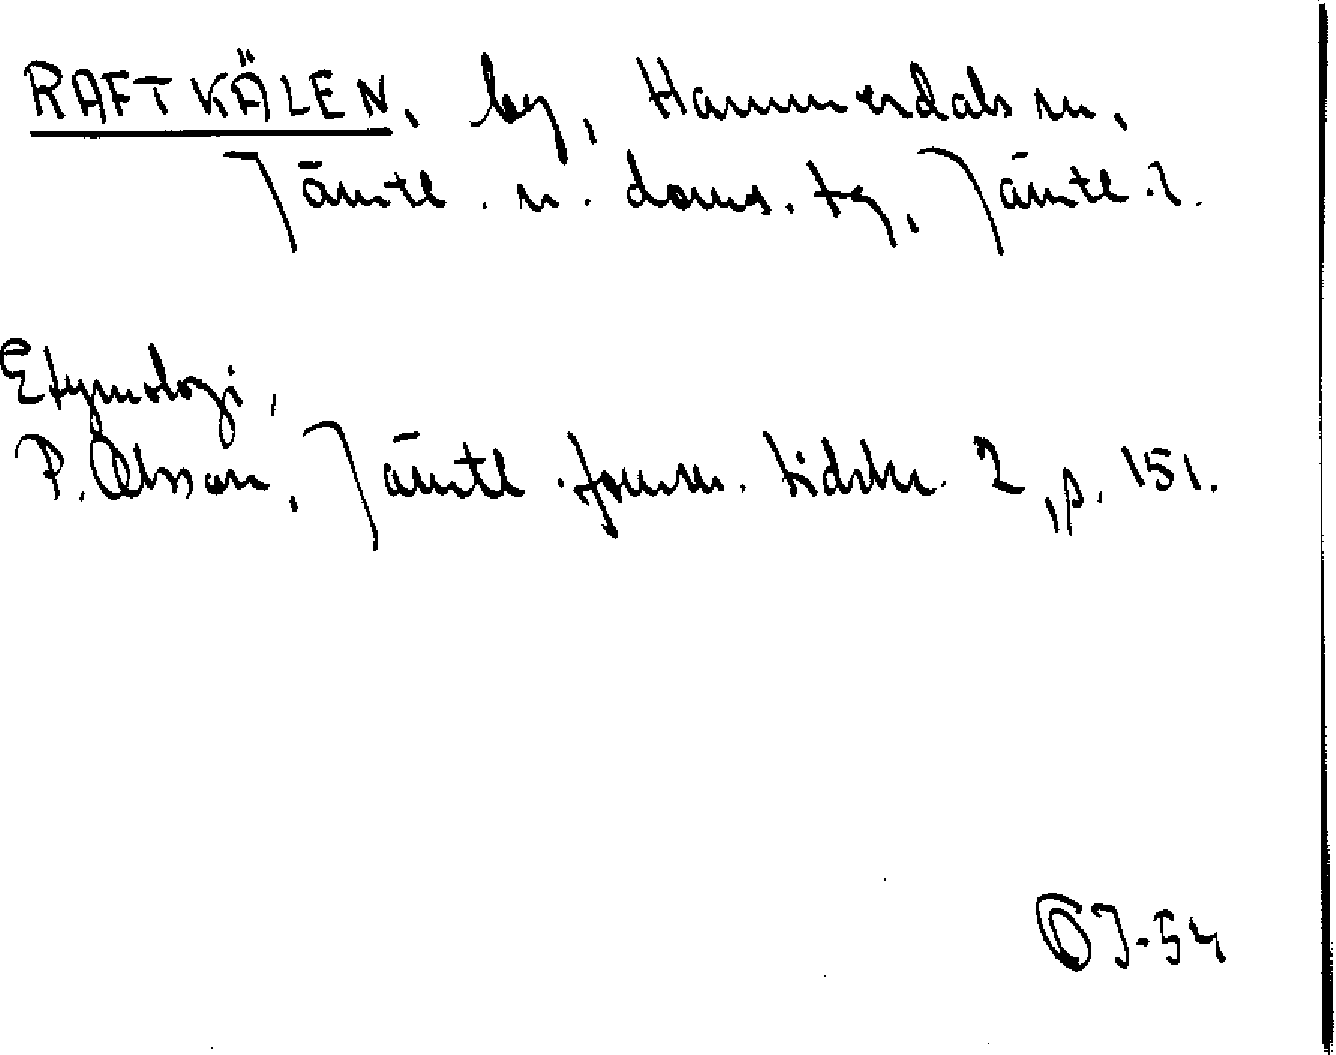 RAFTKÄLEN, by, Hammerdals sn,
Jämtl. n. doms. tg, Jämtl. l.
Etymologi,
P. Olsson, Jämtl. fornm. tidskr. 2, p. 151.
OJ-54